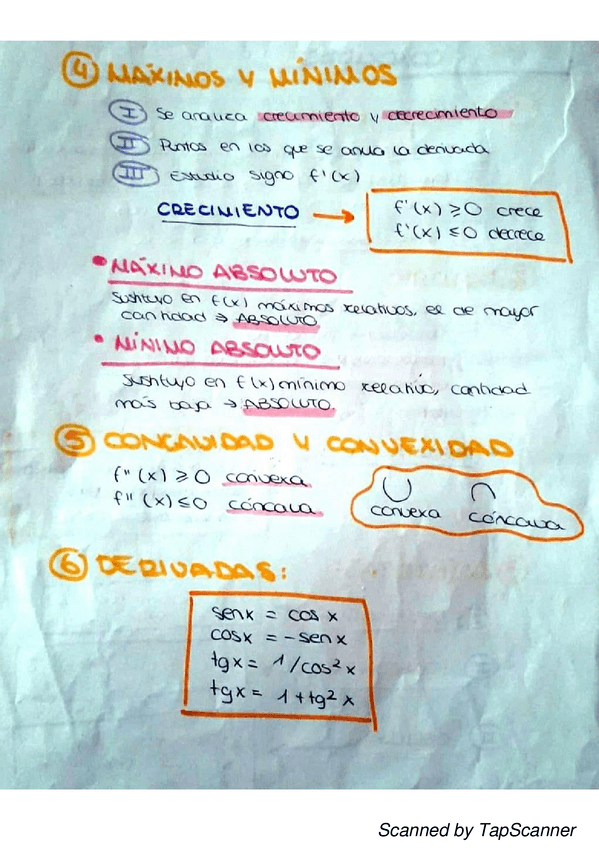 ④ MÁXIMOS Y MÍNIMOS
I Se analiza crecimiento y decrecimiento
II Puntos en los que se anula la derivada
III Estudio signo f'(x)
CRECIMIENTO → f'(x) ≥ 0 crece
f'(x) ≤ 0 decrece
• MÁXIMO ABSOLUTO
Sustituyo en f(x) máximos relativos, el de mayor
cantidad ⇒ ABSOLUTO.
• MÍNIMO ABSOLUTO
Sustituyo en f(x) mínimo relativo, cantidad
más baja → ABSOLUTO.
⑤ CONCAVIDAD Y CONVEXIDAD
f''(x) ≥ 0 convexa
f''(x) ≤ 0 cóncava
convexa cóncava
⑥ DERIVADAS:
senx = cos x
cosx = -senx
tgx = 1/cos²x
tgx = 1+tg²x
Scanned by TapScanner